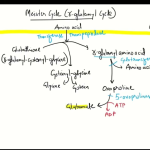 Meister Cycle (γ-glutamyl Cycle)
Amino acid
Transferase Transpeptidase
Glutathione
(γ-glutamyl-cysteinyl-glycine)
γ-glutamyl amino acid
Cysteinyl-glycine
Glycine Cysteine
Amino acid
Oxoproline
5-oxoprolinase
ATP
Glutamate
ADP